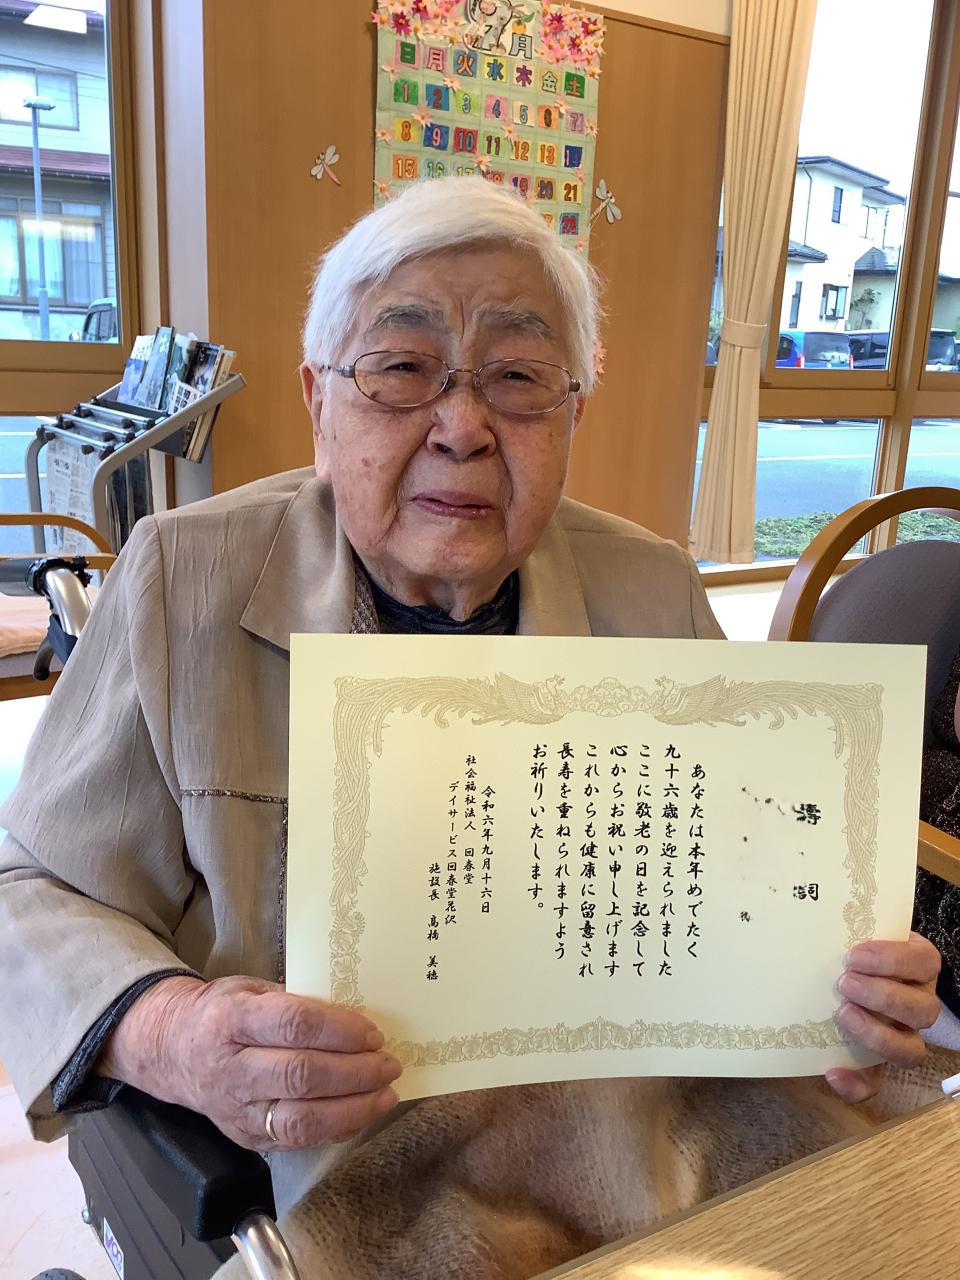 月
日 月 火 水 木 金 土
1 2 3 4 5 6 7
8 9 10 11 12 13 14
15 16 17 18 19 20 21
28
寿詞
あなたは本年めでたく
九十六歳を迎えられました
ここに敬老の日を記念して
心からお祝い申し上げます
これからも健康に留意され
長寿を重ねられますよう
お祈りいたします。
令和六年九月十六日
社会福祉法人 回春堂
デイサービス回春堂花沢
施設長 高橋 美穂